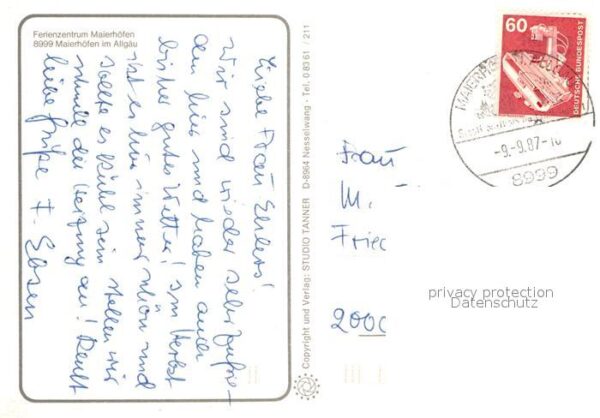 Ferienzentrum Maierhöfen
8999 Maierhöfen im Allgäu
Liebe Frau Ehlers!
Wir sind wieder sehr zufrie-
den hier und haben auch
bisher gutes Wetter! Im Herbst
ist es hier immer schön und
sollte es kühl sein stellen wir
schnell die Heizung an!
liebe Grüße F. Ebsen
Copyright und Verlag: STUDIO TANNER D-8964 Nesselwang · Tel. 0 83 61 / 211
60
DEUTSCHE BUNDESPOST
-9.-9.87-
8999
Frau
M.
Frie
2000
privacy protection
Datenschutz